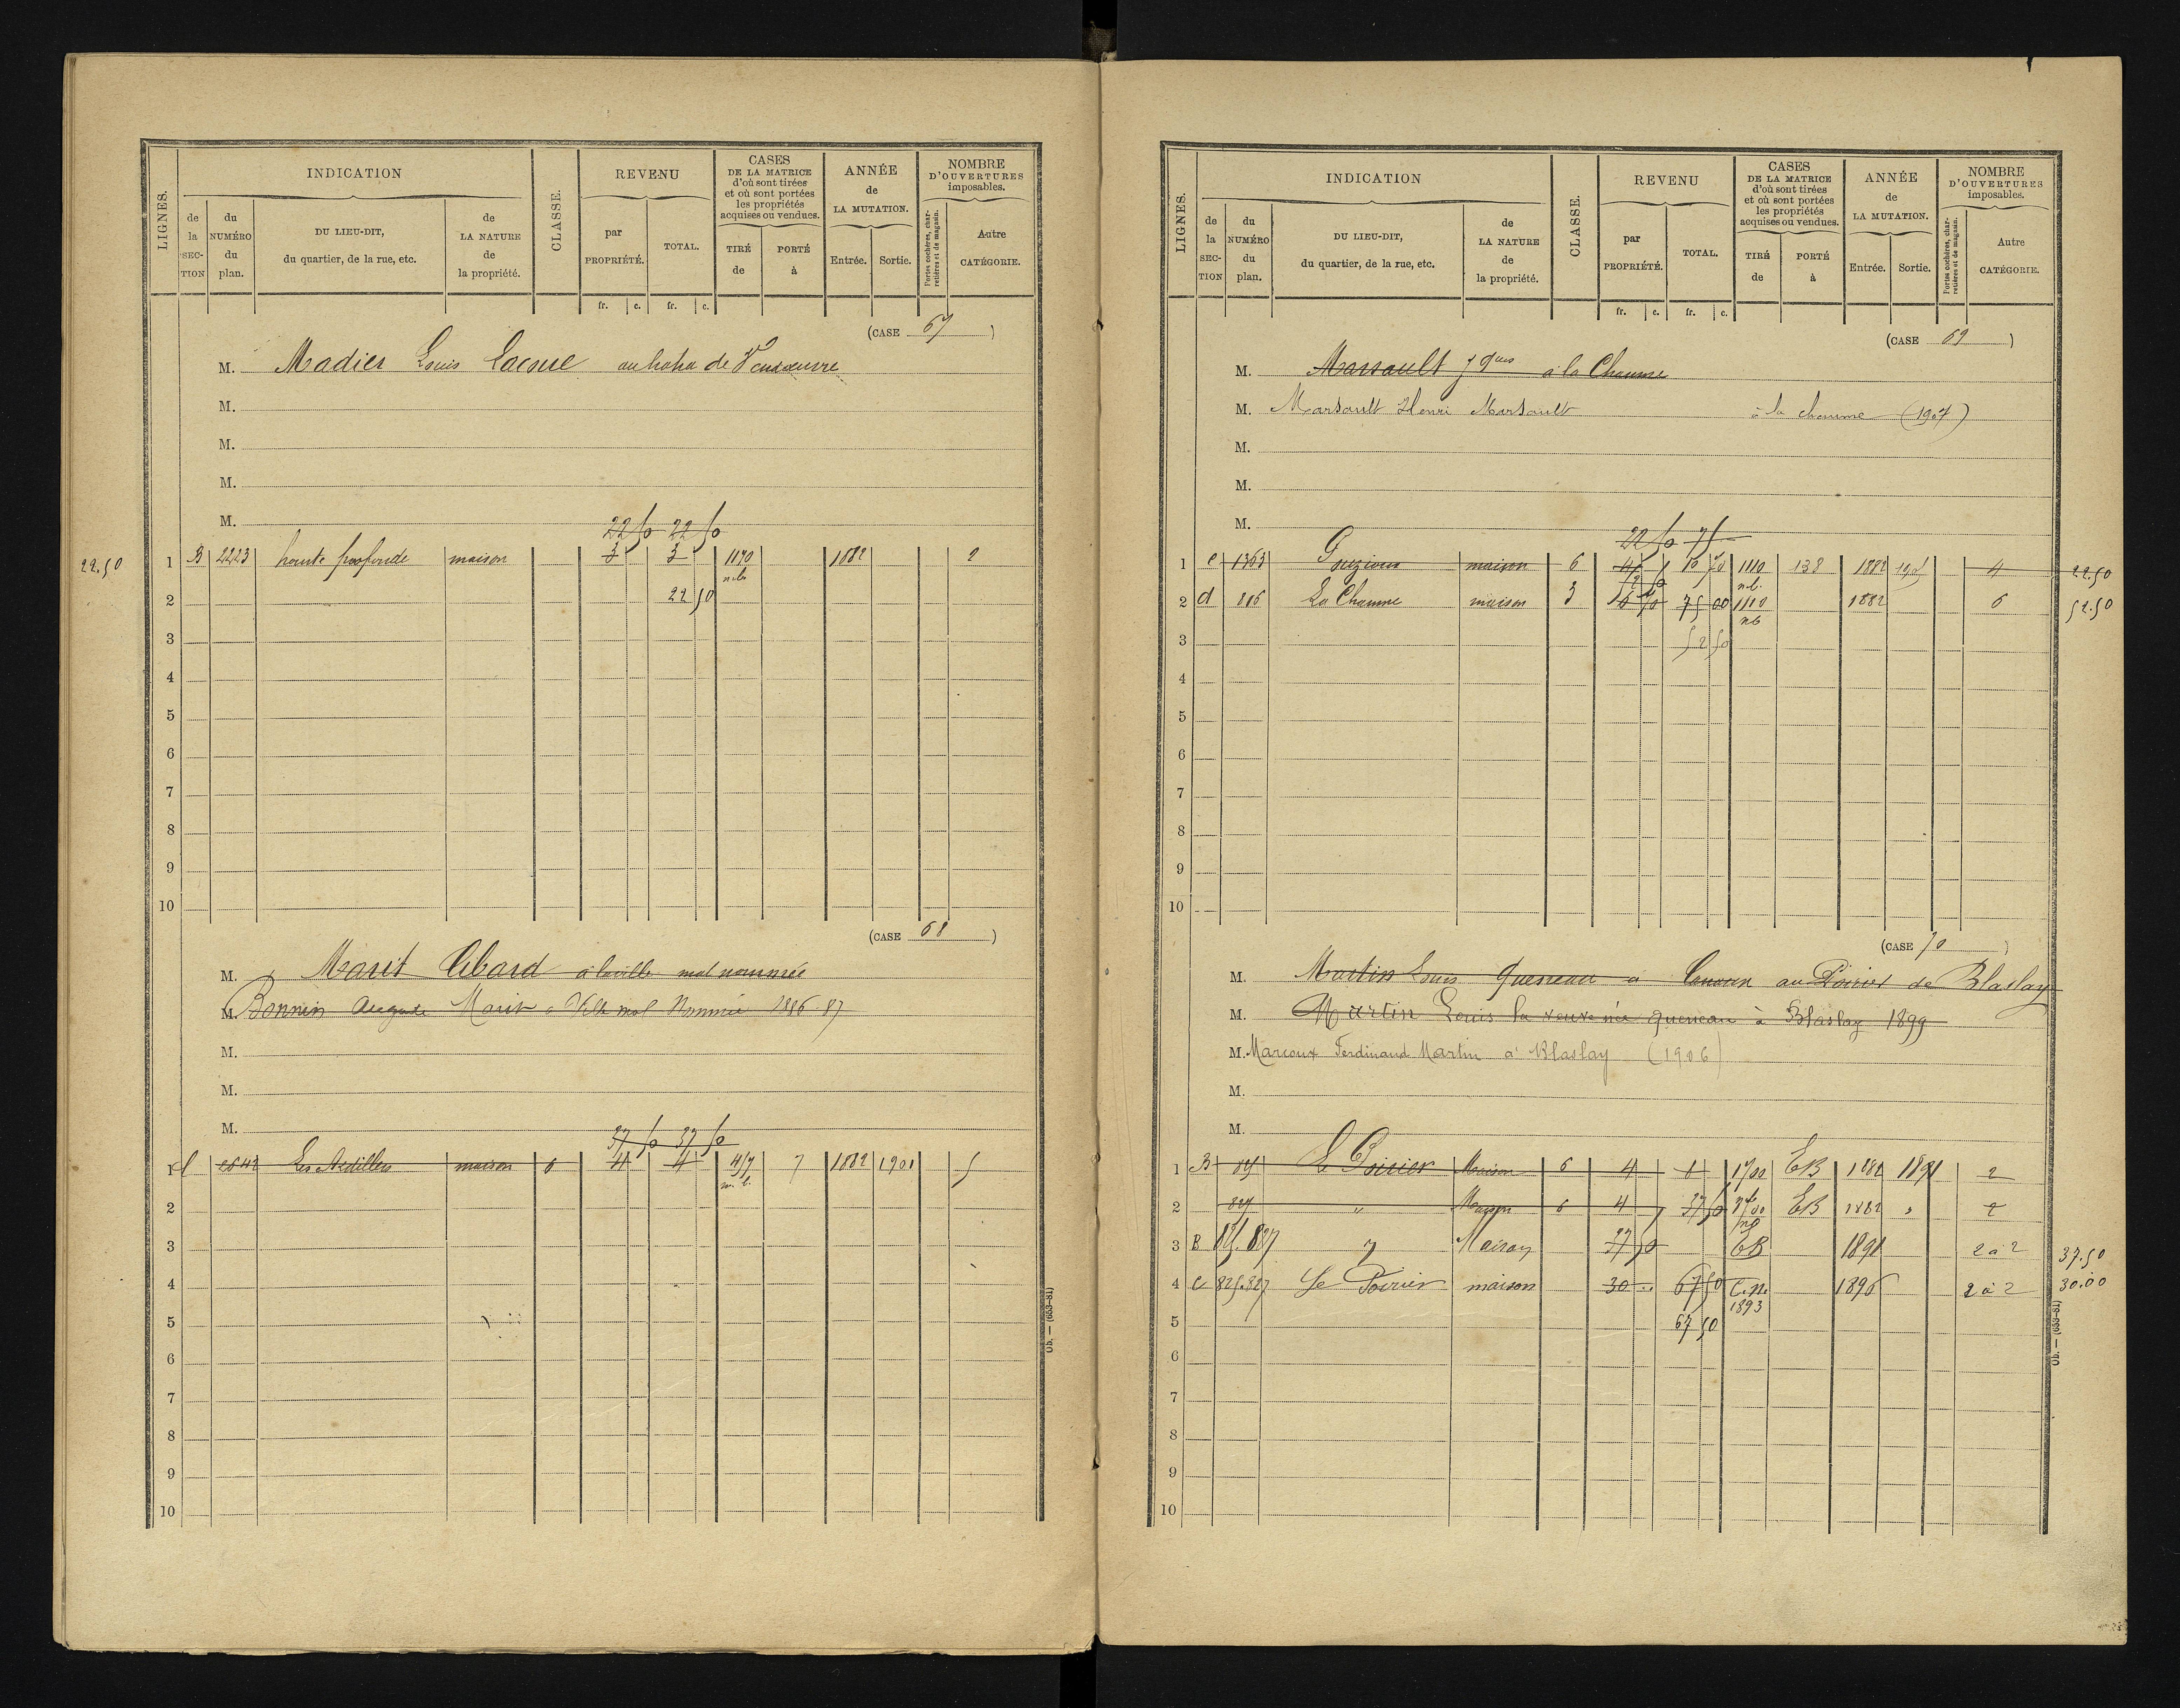 LIGNES. INDICATION CLASSE. REVENU CASES DE LA MATRICE d'où sont tirées et où sont portées les propriétés acquises ou vendues. ANNÉE de LA MUTATION. NOMBRE D'OUVERTURES imposables.
de la SECTION du NUMÉRO du plan. DU LIEU-DIT, du quartier, de la rue, etc. de LA NATURE de la propriété. par PROPRIÉTÉ. TOTAL. TIRÉ de PORTÉ à Entrée. Sortie. Portes cochères, charretières et de magasin. Autre CATÉGORIE.
fr. c. fr. c.
(CASE 67)
M. Madier Louis Lacoue au haha de Vendeuvre
M.
M.
M.
M.
22 50 22 50
22.50 1 B 2223 haute profonde maison 3 3 1170 n.b. 1882 2
2 22 50
3
4
5
6
7
8
9
10
(CASE 68)
M. Marit Cibard à la ville mal nommée
M. Bonnin Auguste Marit à Ville mal Nommée 1886-87
M.
M.
M.
37 50 37 50
1 maison 6 4 4 417 n.b. 7 1882 1901 5
2
3
4
5
6
7
8
9
10
Ob. — (653-81)
LIGNES. INDICATION CLASSE. REVENU CASES DE LA MATRICE d'où sont tirées et où sont portées les propriétés acquises ou vendues. ANNÉE de LA MUTATION. NOMBRE D'OUVERTURES imposables.
de la SECTION du NUMÉRO du plan. DU LIEU-DIT, du quartier, de la rue, etc. de LA NATURE de la propriété. par PROPRIÉTÉ. TOTAL. TIRÉ de PORTÉ à Entrée. Sortie. Portes cochères, charretières et de magasin. Autre CATÉGORIE.
fr. c. fr. c.
(CASE 69)
M. Marsault Jques à la Chaume
M. Marsault Henri Marsault à la chaume (1907)
M.
M.
M.
22 50 75
1 e 1363 maison 6 1110 n.b. 138 1882 4 22.50
2 d 816 La Chaume maison 3 75 00 1110 nb 1882 6 52.50
3 52 50
4
5
6
7
8
9
10
(CASE 70)
M. Martin Louis Queneau au Poirier de Blaslay
M. Martin Louis la veuve née Queneau à Blaslay 1899
M. Marcoux Ferdinand Martin à Blaslay (1906)
M.
M.
1 B Le Poirier Maison 6 4 1700 EB 1882 1891 2
2 827 " Maison 6 4 37 50 EB 1882 " 2
3 B 825.827 " Maison 37 50 EB 1891 2 à 2 37.50
4 e 825.827 Le Poirier maison 30 .. 67 50 C.n. 1893 1896 2 à 2 30.00
5 67 50
6
7
8
9
10
Ob. — (653-81)